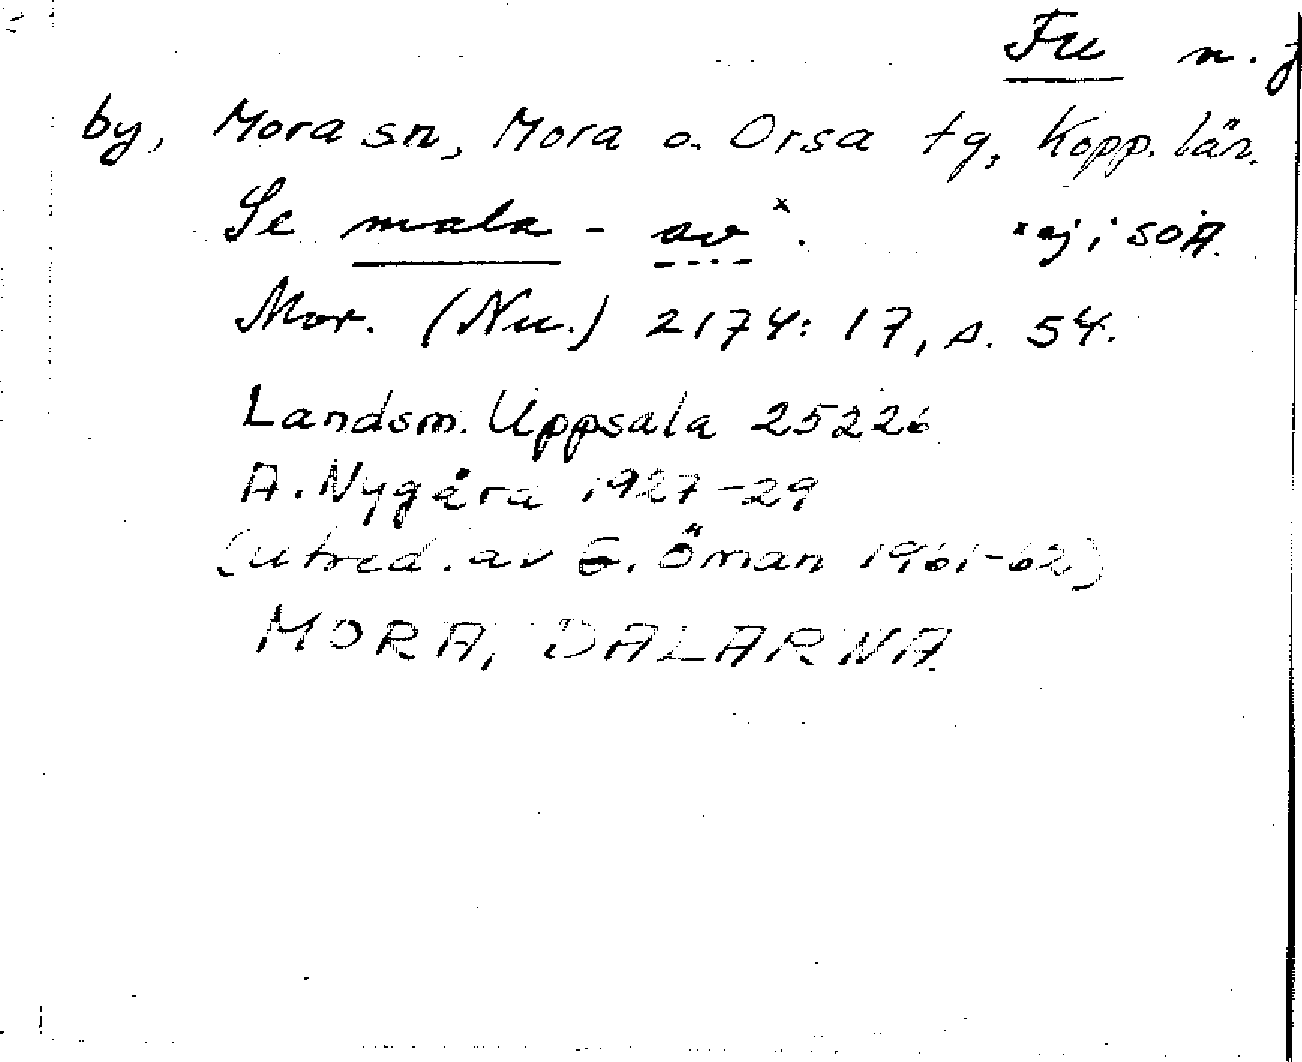 Fu n. f
by, Mora sn, Mora o. Orsa tg, Kopp. län.
Se mala - av x. x ej i SOÄ.
Mor. (Nu.) 2174: 17, s. 54.
Landsm. Uppsala 25226
A. Nygårа 1927-29
(utred. av G. Öman 1961-62)
MORA, DALARNA